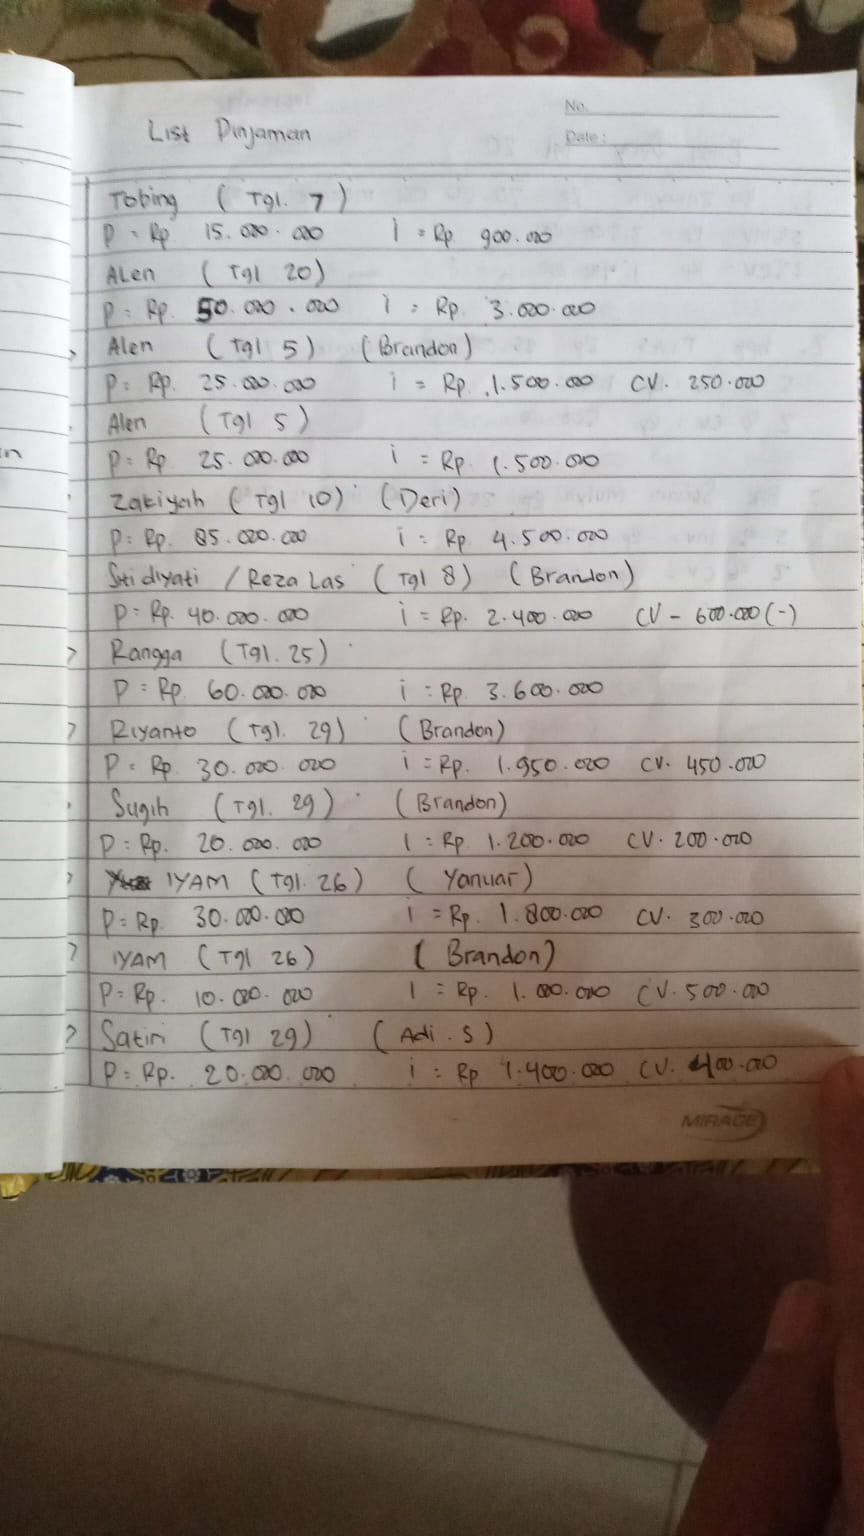 No.
List Pinjaman
Date:
Tobing (Tgl. 7)
P = Rp 15.000.000 i = Rp 900.000
Alen (Tgl 20)
P = Rp. 50.000.000 i = Rp. 3.000.000
Alen (Tgl 5) (Brandon)
P = Rp. 25.000.000 i = Rp. 1.500.000 CV. 250.000
Alen (Tgl 5)
P = Rp 25.000.000 i = Rp. 1.500.000
Zakiyah (Tgl 10) (Deri)
P = Rp. 85.000.000 i = Rp 4.500.000
Siti diyati / Reza Las (Tgl 8) (Brandon)
P = Rp. 40.000.000 i = Rp. 2.400.000 CV - 600.000 (-)
Rangga (Tgl. 25)
P = Rp 60.000.000 i = Rp 3.600.000
Riyanto (Tgl. 29) (Brandon)
P = Rp 30.000.000 i = Rp. 1.950.000 CV. 450.000
Sugih (Tgl. 29) (Brandon)
P = Rp. 20.000.000 i = Rp 1.200.000 CV. 200.000
IYAM (Tgl. 26) (Yanuar)
P = Rp. 30.000.000 i = Rp. 1.800.000 CV. 300.000
IYAM (Tgl 26) (Brandon)
P = Rp. 10.000.000 i = Rp. 1.000.000 CV. 500.000
Satiri (Tgl 29) (Adi. S)
P = Rp. 20.000.000 i = Rp 1.400.000 CV. 400.000
MIRAGE